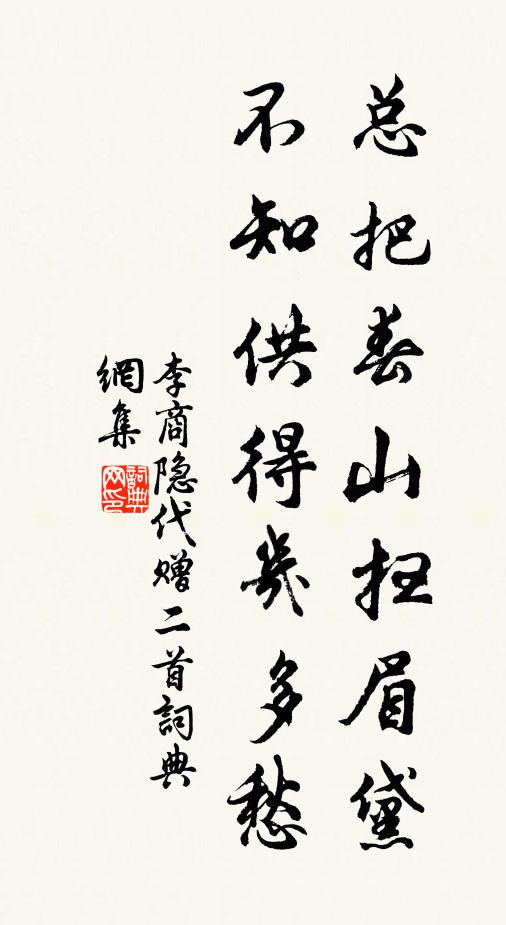 总把春山扫眉黛
不知供得几多愁
李商隐代赠二首詞典
網集
詞典
网印